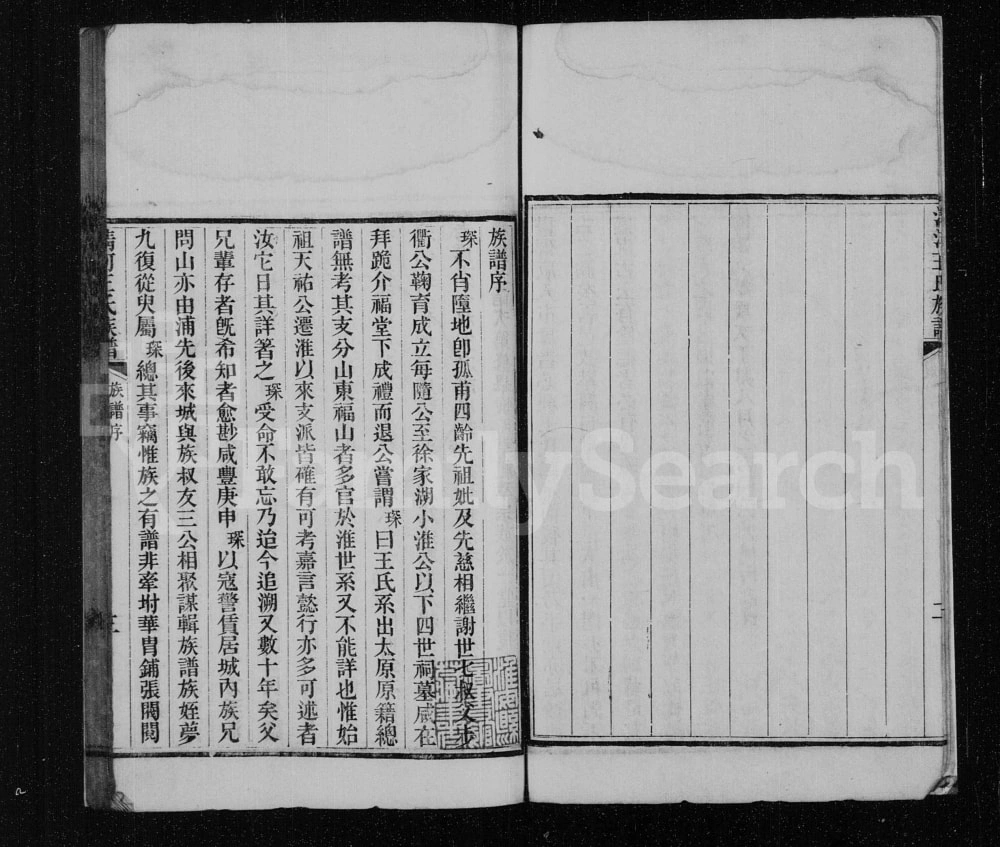 清河王氏族譜
二
族譜序
琛不肖墮地卽孤甫四齡先祖妣及先慈相繼謝世七叔父步
衢公鞠育成立每隨公至徐家湖小淮公以下四世祠墓咸在
拜跪介福堂下成禮而退公嘗謂琛曰王氏系出太原原籍總
譜無考其支分山東福山者多官於淮世系又不能詳也惟始
祖天祐公遷淮以來支派皆確有可考嘉言懿行亦多可述者
汝它日其詳箸之琛受命不敢忘乃迨今追溯又數十年矣父
兄輩存者旣希知者愈尠咸豐庚申琛以寇警賃居城內族兄
問山亦由浦先後來城與族叔友三公相聚謀輯族譜族姪夢
九復從臾屬琛總其事竊惟族之有譜非牽坿華胄鋪張閥閱
清河王氏族譜
族譜序
三
FamilySearch